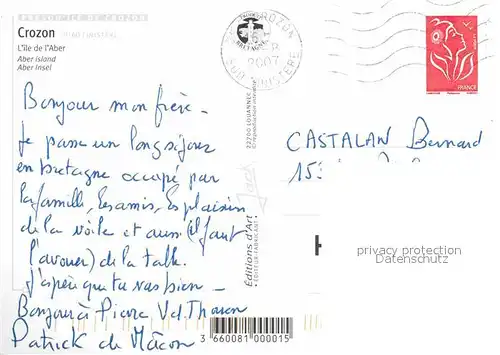 PRESQU'ILE DE CROZON
Crozon
L'île de l'Aber
Aber island
Aber Insel
CROZON
BRETAGNE
2007
SUD FINISTERE
FRANCE
Bonjour mon frère -
Je passe un long séjour
en bretagne occupé par
la famille, les amis, les plaisirs
de la voile et aussi (il faut
l'avouer) de la table.
J'espère que tu vas bien -
Bonjour à Pierre Val Thoren
Patrick de Mâcon
22700 LOUANNEC
Editions d'Art
EDITEUR-FABRICANT
Jack
CASTALAN Bernard
privacy protection
Datenschutz
3 660081 000015